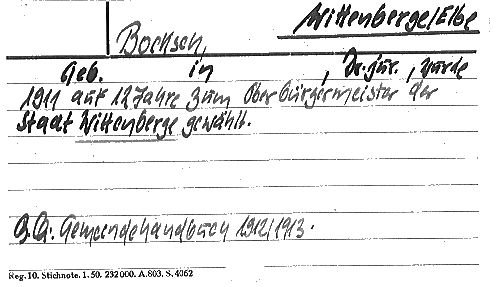 Wittenberge/Elbe
Bocksch,
Geb. in , Dr. jur., wurde
1911 auf 12 Jahre zum Oberbürgermeister der
Stadt Wittenberge gewählt.
Q.A: Gemeindehandbuch 1912/1913.
Reg. 10. Stichnote. 1. 50. 232000. A. 803. S. 4062